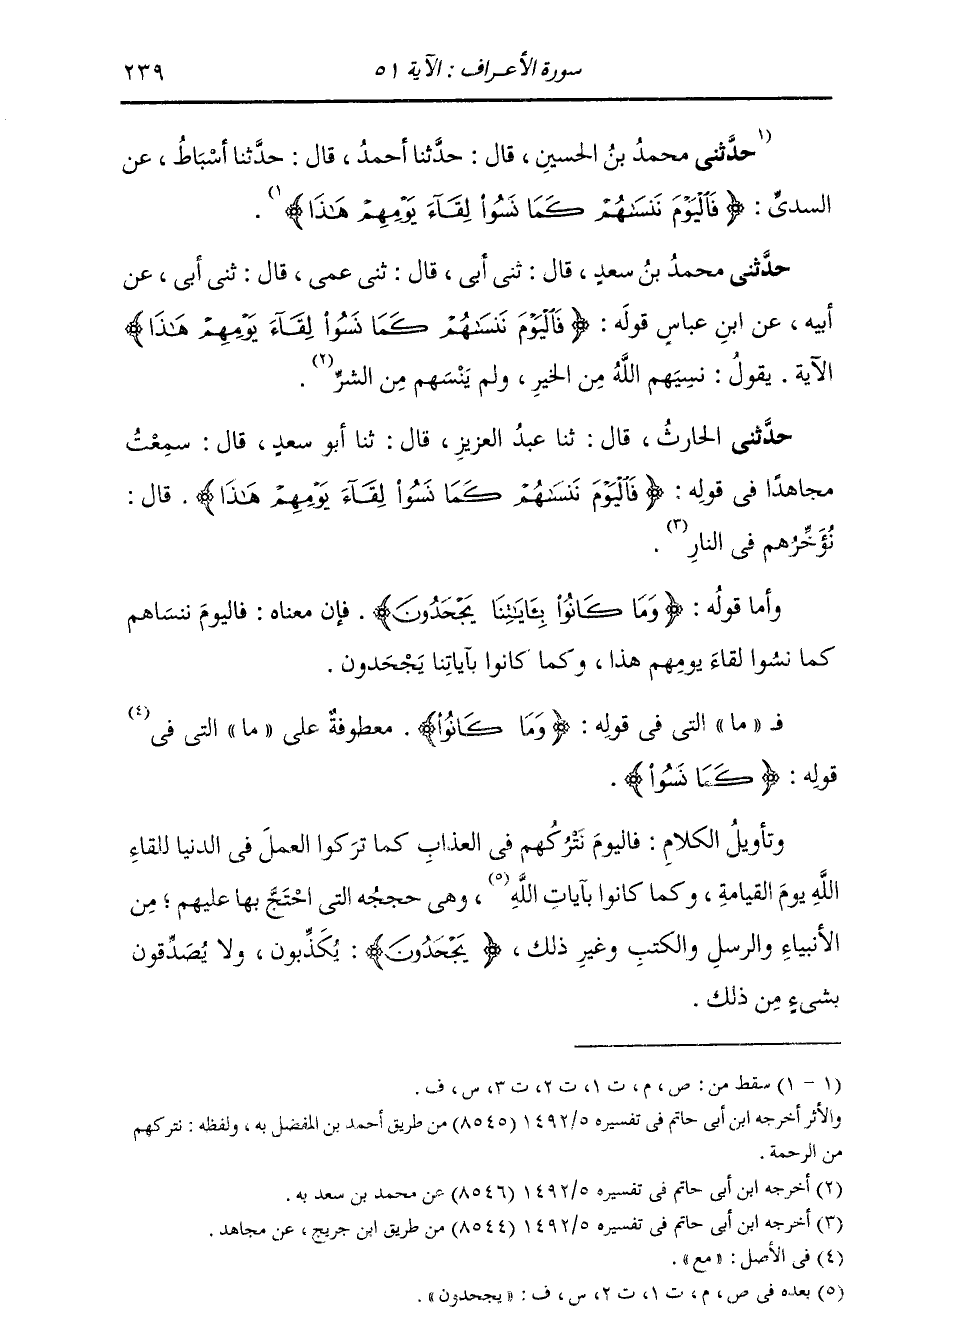 سورة الأعراف : الآية ٥١ ٢٣٩
(١حدَّثنى محمدُ بنُ الحسينِ ، قال : حدَّثنا أحمدُ ، قال : حدَّثنا أسْبَاطُ ، عن
السدىِّ : ﴿ فَٱلْيَوْمَ نَنسَىٰهُمْ كَمَا نَسُوا۟ لِقَآءَ يَوْمِهِمْ هَٰذَا ﴾١) .
حدَّثنى محمدُ بنُ سعدٍ ، قال : ثنى أبى ، قال : ثنى عمى ، قال : ثنى أبى ، عن
أبيه ، عن ابنِ عباسٍ قولَه : ﴿ فَٱلْيَوْمَ نَنسَىٰهُمْ كَمَا نَسُوا۟ لِقَآءَ يَوْمِهِمْ هَٰذَا ﴾
الآية . يقولُ : نسِيَهم اللَّهُ مِن الخيرِ ، ولم يَنْسَهم مِن الشرِّ(٢) .
حدَّثنى الحارثُ ، قال : ثنا عبدُ العزيزِ ، قال : ثنا أبو سعدٍ ، قال : سمِعْتُ
مجاهدًا فى قولِه : ﴿ فَٱلْيَوْمَ نَنسَىٰهُمْ كَمَا نَسُوا۟ لِقَآءَ يَوْمِهِمْ هَٰذَا ﴾ . قال :
نُؤَخِّرُهم فى النارِ(٣) .
وأما قولُه : ﴿ وَمَا كَانُوا۟ بِـَٔايَٰتِنَا يَجْحَدُونَ ﴾ . فإن معناه : فاليومَ ننسَاهم
كما نسُوا لقاءَ يومِهم هذا ، وكما كانوا بآياتِنا يَجْحَدون .
فـ « ما » التى فى قولِه : ﴿ وَمَا كَانُوا۟ ﴾ . معطوفةٌ على « ما » التى فى(٤)
قولِه : ﴿ كَمَا نَسُوا۟ ﴾ .
وتأويلُ الكلامِ : فاليومَ نَتْرُكُهم فى العذابِ كما ترَكوا العملَ فى الدنيا للقاءِ
اللَّهِ يومَ القيامةِ ، وكما كانوا بآياتِ اللَّهِ(٥) ، وهى حججُه التى احْتَجَّ بها عليهم ؛ مِن
الأنبياءِ والرسلِ والكتبِ وغيرِ ذلك ، ﴿ يَجْحَدُونَ ﴾ : يُكَذِّبون ، ولا يُصَدِّقون
بشىءٍ مِن ذلك .
(١ - ١) سقط من : ص ، م ، ت ١، ت ٢، ت ٣، س ، ف .
والأثر أخرجه ابن أبى حاتم فى تفسيره ١٤٩٢/٥ (٨٥٤٥) من طريق أحمد بن المفضل به ، ولفظه : نتركهم
من الرحمة .
(٢) أخرجه ابن أبى حاتم فى تفسيره ١٤٩٢/٥ (٨٥٤٦) عن محمد بن سعد به .
(٣) أخرجه ابن أبى حاتم فى تفسيره ١٤٩٢/٥ (٨٥٤٤) من طريق ابن جريج ، عن مجاهد .
(٤) فى الأصل : « مع » .
(٥) بعده فى ص ، م ، ت ١، ت ٢، س ، ف : « يجحدون » .